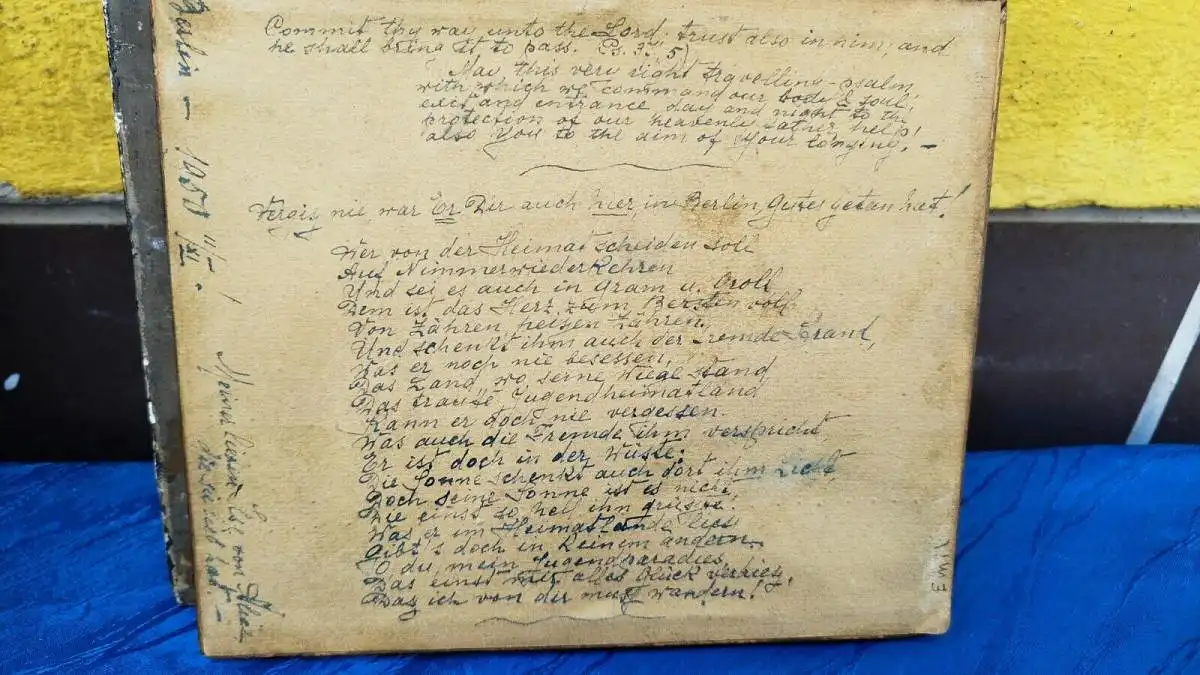 Commit thy way unto the Lord; trust also in him; and
he shall bring it to pass. (Ps. 37, 5)
May this very right travelling-psalm,
with which we command our body & soul,
exit and entrance day and night to the
protection of our heavenly father, help
also You to the aim of your longing. —
Vergiß nie, was Er Dir auch hier, in Berlin, Gutes getan hat!
Wer von der Heimat scheiden soll
Auf Nimmerwiederkehren
Und sei es auch in Gram u. Groll
Dem ist das Herz zum Bersten voll
Von Zähren, heißen Zähren.
Und schenkt ihm auch der Fremde Strand,
Was er noch nie besessen,
Das Land, wo seine Wiege stand
Das traute Jugendheimatland
Kann er doch nie vergessen.
Was auch die Fremde ihm verspricht,
Er ist doch in der Wüste;
Die Sonne schenkt auch dort ihm Licht,
Doch seine Sonne ist es nicht,
Die einst so hell ihn grüßte.
Was er im Heimatlande ließ
Gibt's doch in keinem andern.
O du, mein Jugendparadies,
Das einst mir alles Glück verhieß,
Daß ich von dir muß wandern!
Berlin — 1950 11/XI.
Meiner lieben von